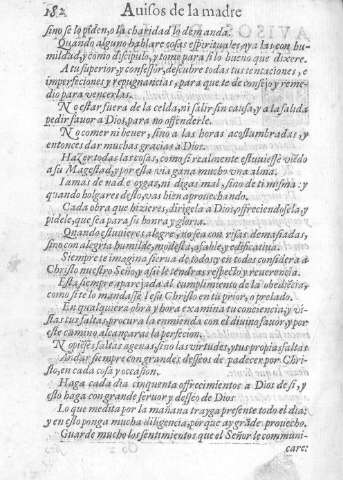 182 Auisos de la madre
sino se lo piden, o la charidad lo demanda.
Quando alguno hablare cosas espirituales, oyalas con hu-
mildad, y como discipulo, y tome para si lo bueno que dixere.
A tu superior, y confessor, descubre todas tus tentaciones, e
imperfeciones y repugnancias, para que te de consejo y reme-
dio para vencerlas.
No estar fuera de la celda, ni salir sin causa, y a la salida
pedir fauor a Dios para no offenderle.
No comer ni beuer, sino a las horas acostumbradas, y
entonces dar muchas gracias a Dios.
Hazer todas las cosas, como si realmente estuuiesse viẽdo
a su Magestad, y por esta via gana mucho vna alma.
Iamas de nadie oygas, ni digas mal, sino de ti misma: y
quando holgares desto, vas bien aprouechando.
Cada obra que hizieres, dirigela a Dios, ofreciendosela, y
pidele, que sea para su honra y gloria.
Quando estuuieres alegre, no sea con risas demasiadas,
sino con alegria humilde, modesta, afable y edificatiua.
Siempre te imagina sierua de todos y en todos considera a
Christo nuestro Señor, y assi le tendras respecto y reuerencia.
Esta siempre aparejada al cumplimiento de la obediẽcia,
como si te lo mandasse Iesu Christo en tu prior, o prelado.
En qualquiera obra y hora examina tu conciencia, y vis-
tas tus faltas, procura la enmienda con el diuino fauor, y por
este camino alcançaras la perfecion.
No piẽses faltas agenas, sino las virtudes, y tus propias faltas
Andar siempre con grandes desseos de padecer por Chri-
sto, en cada cosa y occasion.
Haga cada dia cinquenta offrecimientos a Dios de si, y
esto haga con grande feruor y desseo de Dios
Lo que medita por la mañana trayga presente todo el dia:
y en esto ponga mucha diligencia, por que ay grãde prouecho.
Guarde mucho los sentimientos que el Señor le communi-
care: